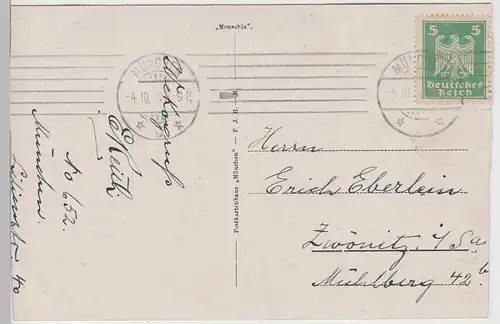 „Monachia“.
MÜNCHEN
-4.10.
5 5
Deutsches
Reich
Postkartenhaus „München“ — F. J. H. — M.
No 652.
München.
Herrn
Erich Eberlein
Zwönitz i/Sa
Mühlberg 42 b